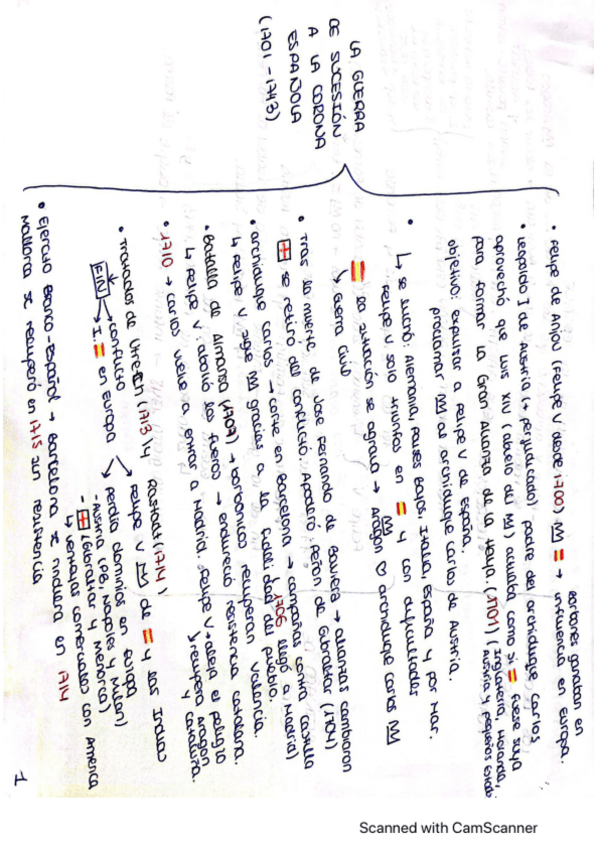 LA GUERRA
DE SUCESIÓN
A LA CORONA
ESPAÑOLA
(1701 - 1743)
• Felipe de Anjou (Felipe V desde 1700) → Borbones ganaban en
influencia en Europa.
• Leopoldo I de Austria (+ perjudicado) - padre del archiduque Carlos
aprovechó que Luis XIV (abuelo del) actuaba como si fuese suya
para formar la Gran Alianza de la Haya. (1701) (Inglaterra, Holanda,
Austria y pequeños estados
objetivo: expulsar a Felipe V de España.
proclamar al archiduque Carlos de Austria.
↳ se luchó: Alemania, Países Bajos, Italia, España y por Mar.
Felipe V solo triunfos en y con dificultades
la situación se agrava → Aragón ♡ archiduque Carlos
↳ Guerra Civil
• Tras la muerte de Jose Fernando de Baviera → alianzas cambiaron
se retiró del conflicto. Apoderó: Peñon de Gibraltar (1704)
• archiduque Carlos → corte en Barcelona → campañas contra Castilla
↓ 1706 llegó a Madrid)
↳ Felipe V sigue gracias a la fidelidad del pueblo.
• Batalla de Almansa (1707) → borbónicos recuperan Valencia.
↳ Felipe V: abolió los fueros → endureció resistencia catalana.
• 1710 → Carlos vuelve a entrar a Madrid. Felipe V → aleja el peligro
↘ recupera Aragón
y Cataluña.
• Tratados de Utrech (1713) y Rastadt (1714)
FIN → conflicto
→ I. en Europa
→ Felipe V de y las Indias
→ perdía dominios en Europa
- Austria (PB, Nápoles y Milán)
- (Gibraltar y Menorca)
↳ ventajas comerciales con América
• Ejercito Franco-Español → Barcelona se rindiera en 1714
Mallorca se recuperó en 1715 sin resistencia
1
Scanned with CamScanner